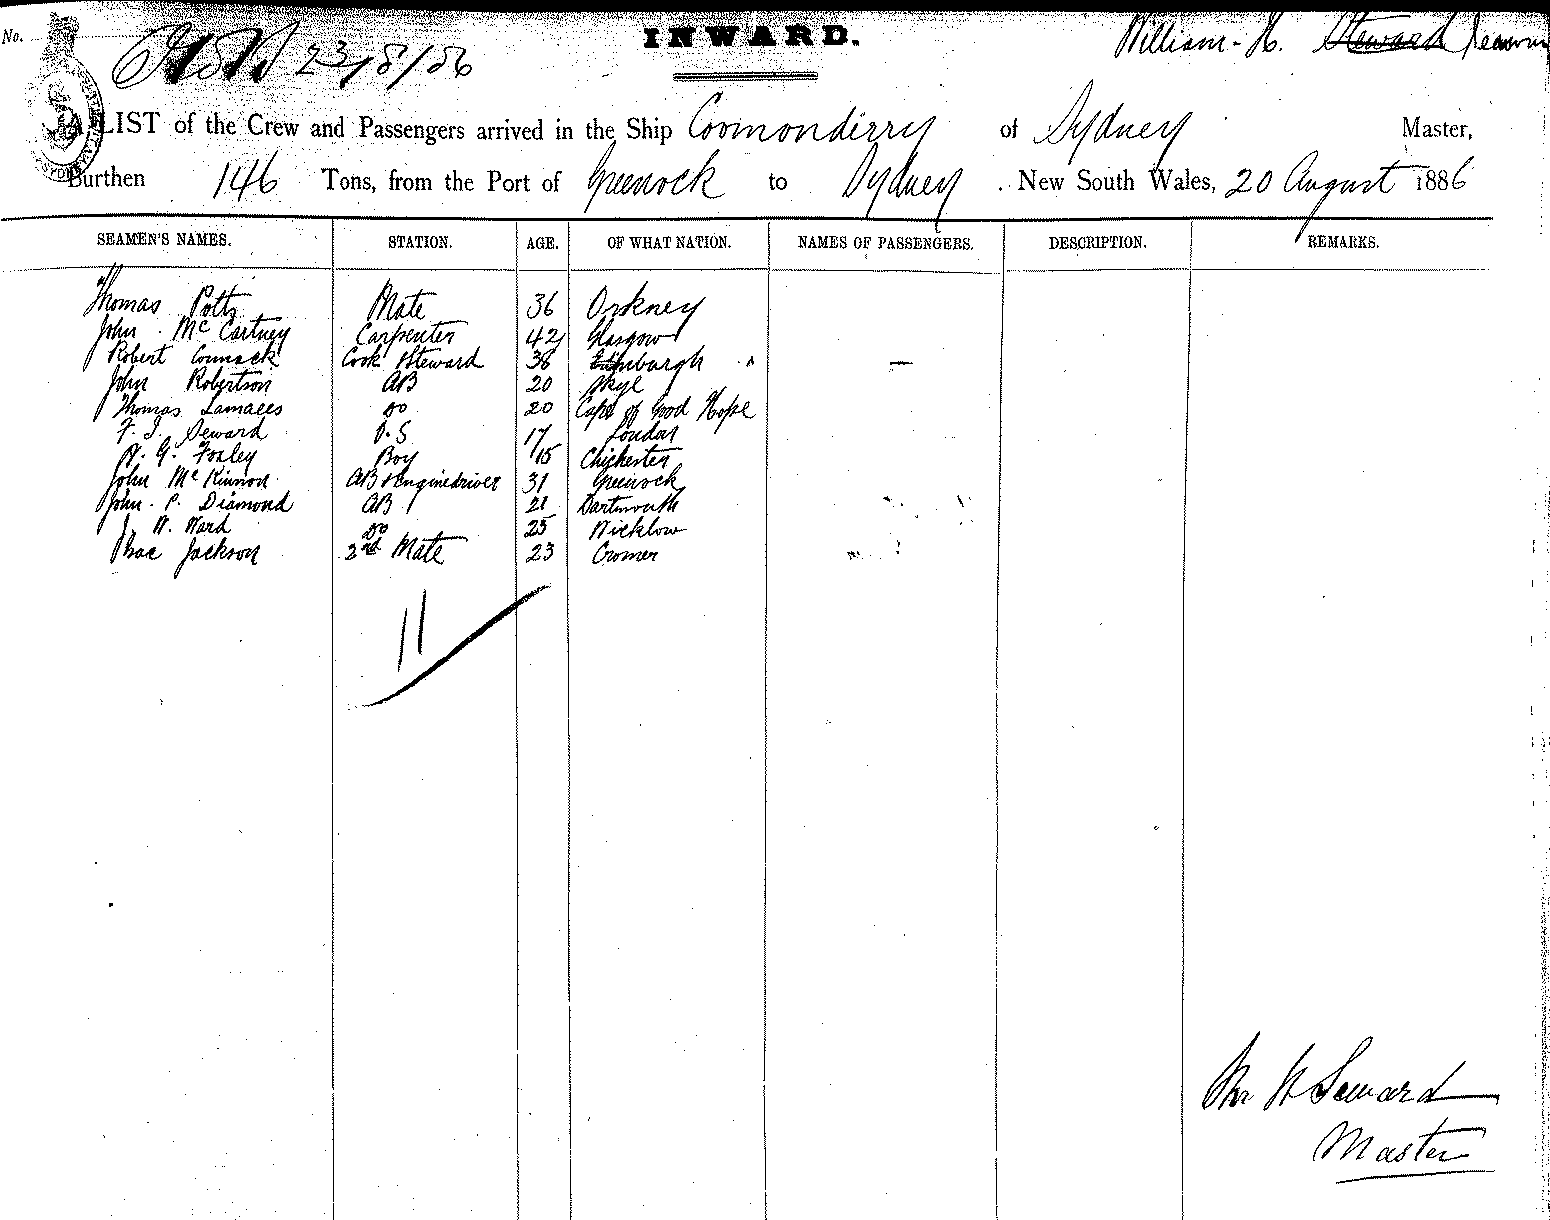 No.
23/8/86
INWARD.
William. H. Steward Seaward
A LIST of the Crew and Passengers arrived in the Ship Coomonderry of Sydney Master,
Burthen 146 Tons, from the Port of Greenock to Sydney. New South Wales, 20 August 1886
SEAMEN'S NAMES. STATION. AGE. OF WHAT NATION. NAMES OF PASSENGERS. DESCRIPTION. REMARKS.
Thomas Potts Mate 36 Orkney
John McCartney Carpenter 42 Glasgow
Robert Cormack Cook & Steward 38 Edinburgh —
John Robertson AB 20 Skye
Thomas do 20 Cape of Good Hope
F. J. Seward O.S 17 London
W. G. Foxley Boy 15 Chichester
John McKinnon AB & Enginedriver 31 Greenock
John. P. Diamond AB 21 Dartmouth
J. W. Ward do 25 Wicklow
Isac Jackson 2nd Mate 23 Cromer
11
Wm H Seward
Master